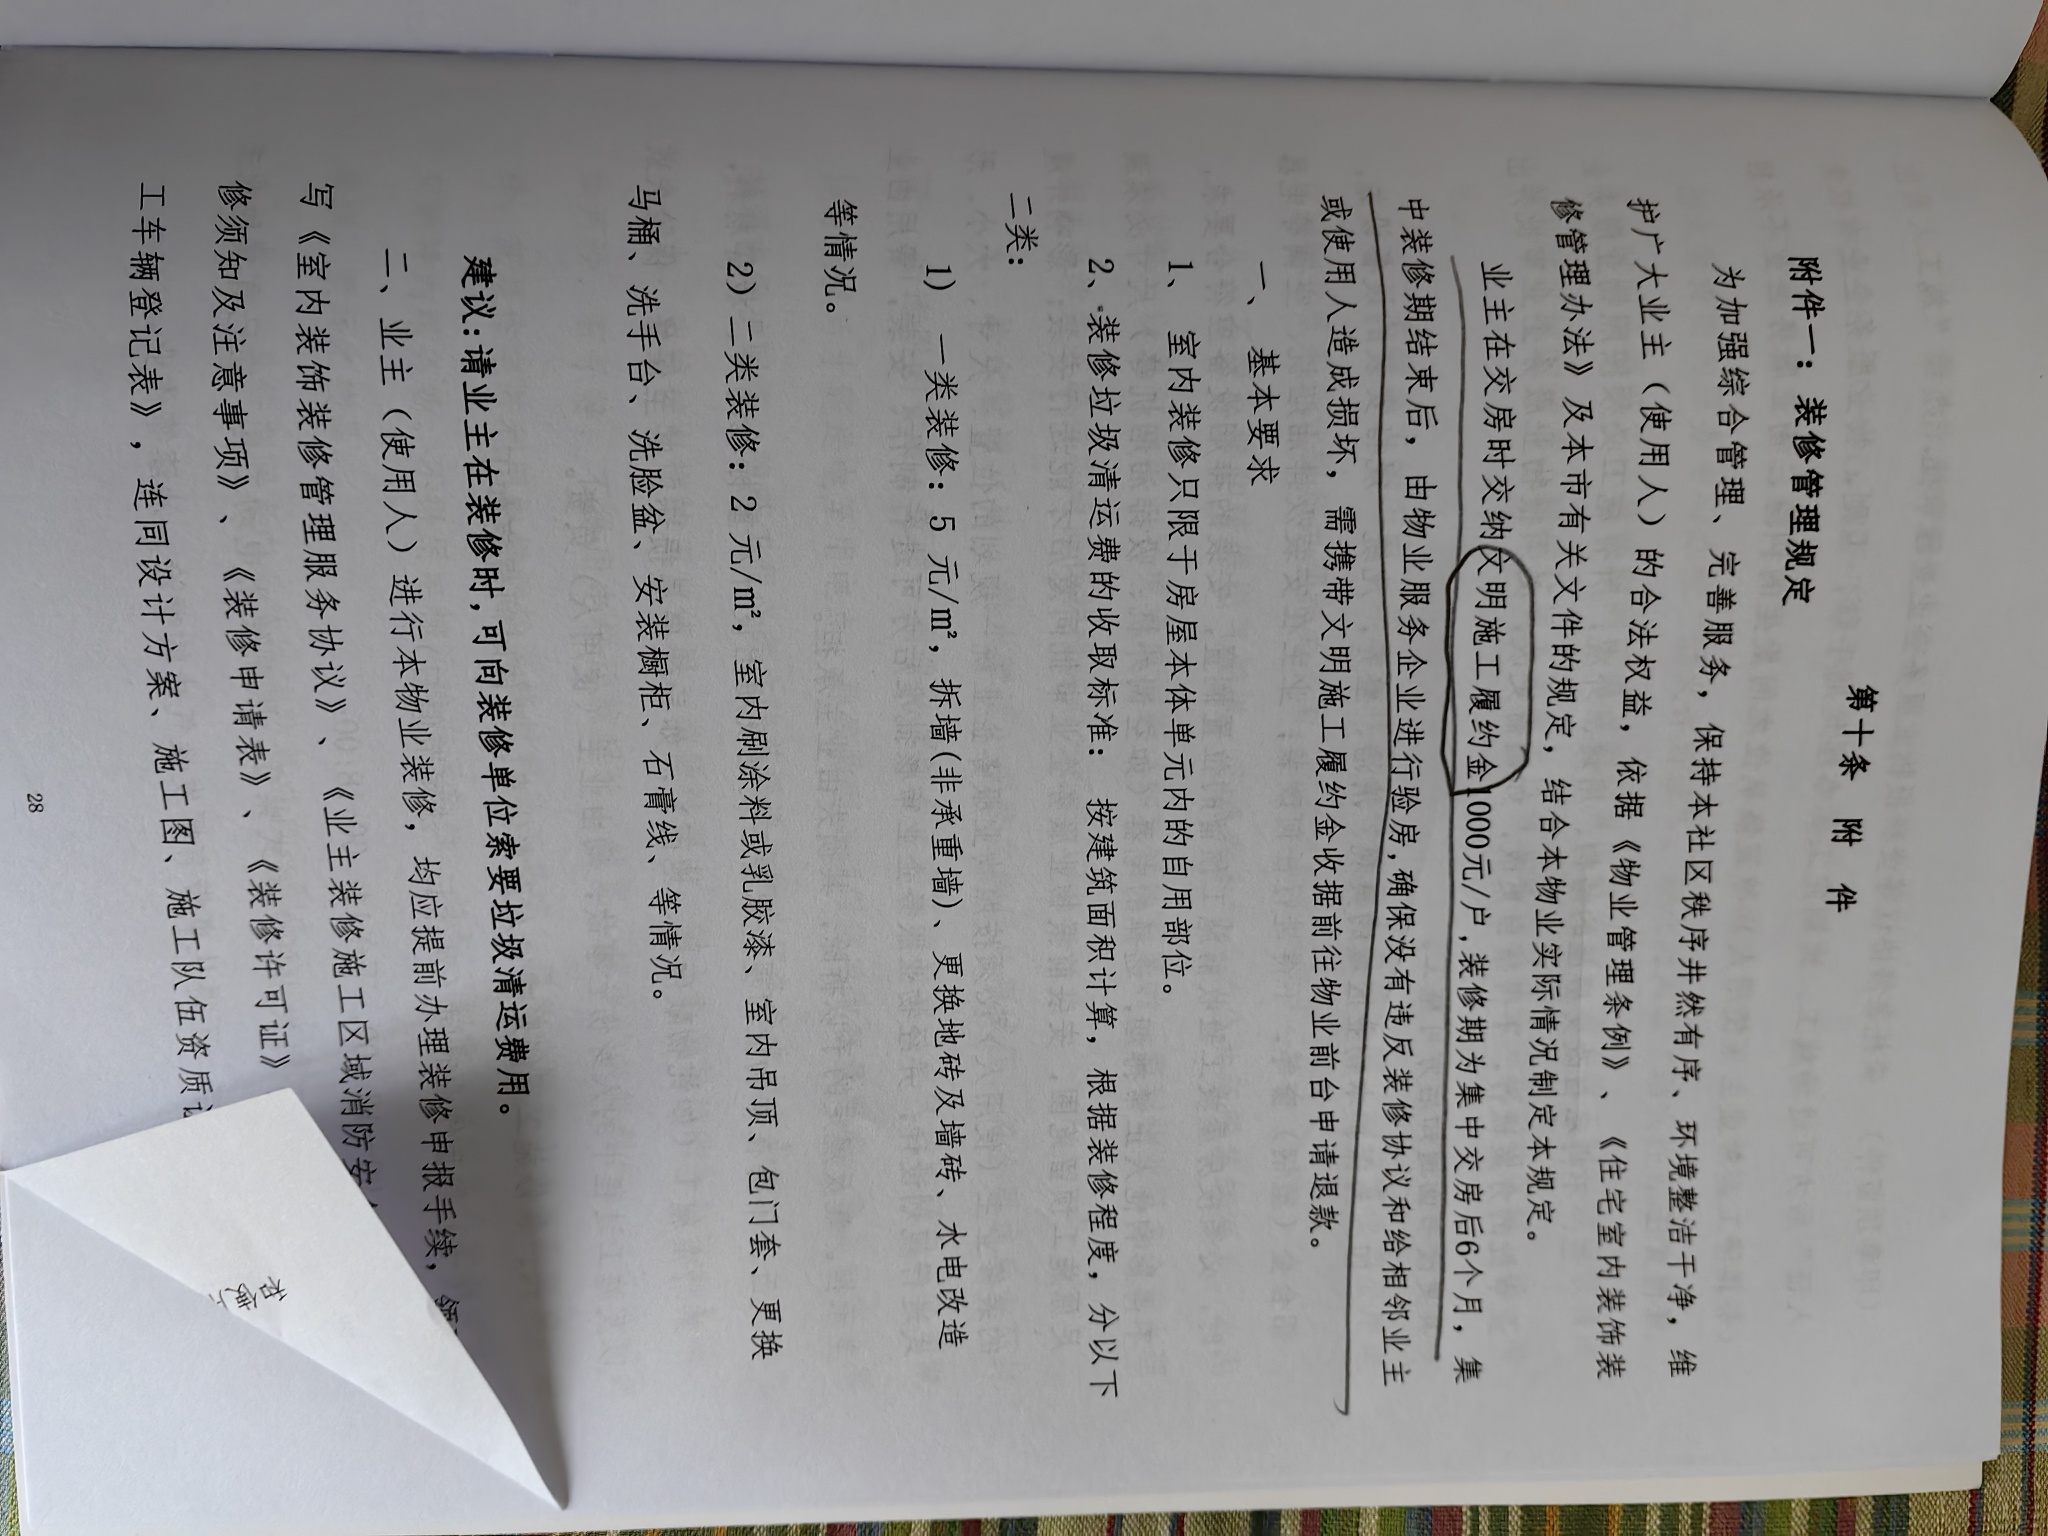 第十条 附 件
附件一：装修管理规定
为加强综合管理、完善服务，保持本社区秩序井然有序、环境整洁干净，维
护广大业主（使用人）的合法权益，依据《物业管理条例》、《住宅室内装饰装
修管理办法》及本市有关文件的规定，结合本物业实际情况制定本规定。
业主在交房时交纳文明施工履约金1000元/户，装修期为集中交房后6个月，集
中装修期结束后，由物业服务企业进行验房，确保没有违反装修协议和给相邻业主
或使用人造成损坏，需携带文明施工履约金收据前往物业前台申请退款。
一、 基本要求
1、 室内装修只限于房屋本体单元内的自用部位。
2、装修垃圾清运费的收取标准： 按建筑面积计算，根据装修程度，分以下
二类：
1） 一类装修：5 元/m²，拆墙(非承重墙)、更换地砖及墙砖、水电改造
等情况。
2）二类装修：2 元/m²，室内刷涂料或乳胶漆、室内吊顶、包门套、更换
马桶、洗手台、洗脸盆、安装橱柜、石膏线、等情况。
建议：请业主在装修时，可向装修单位索要垃圾清运费用。
二、业主（使用人）进行本物业装修，均应提前办理装修申报手续，
写《室内装饰装修管理服务协议》、《业主装修施工区域消防安
修须知及注意事项》、《装修申请表》、《装修许可证》
工车辆登记表》，连同设计方案、施工图、施工队伍资质
28